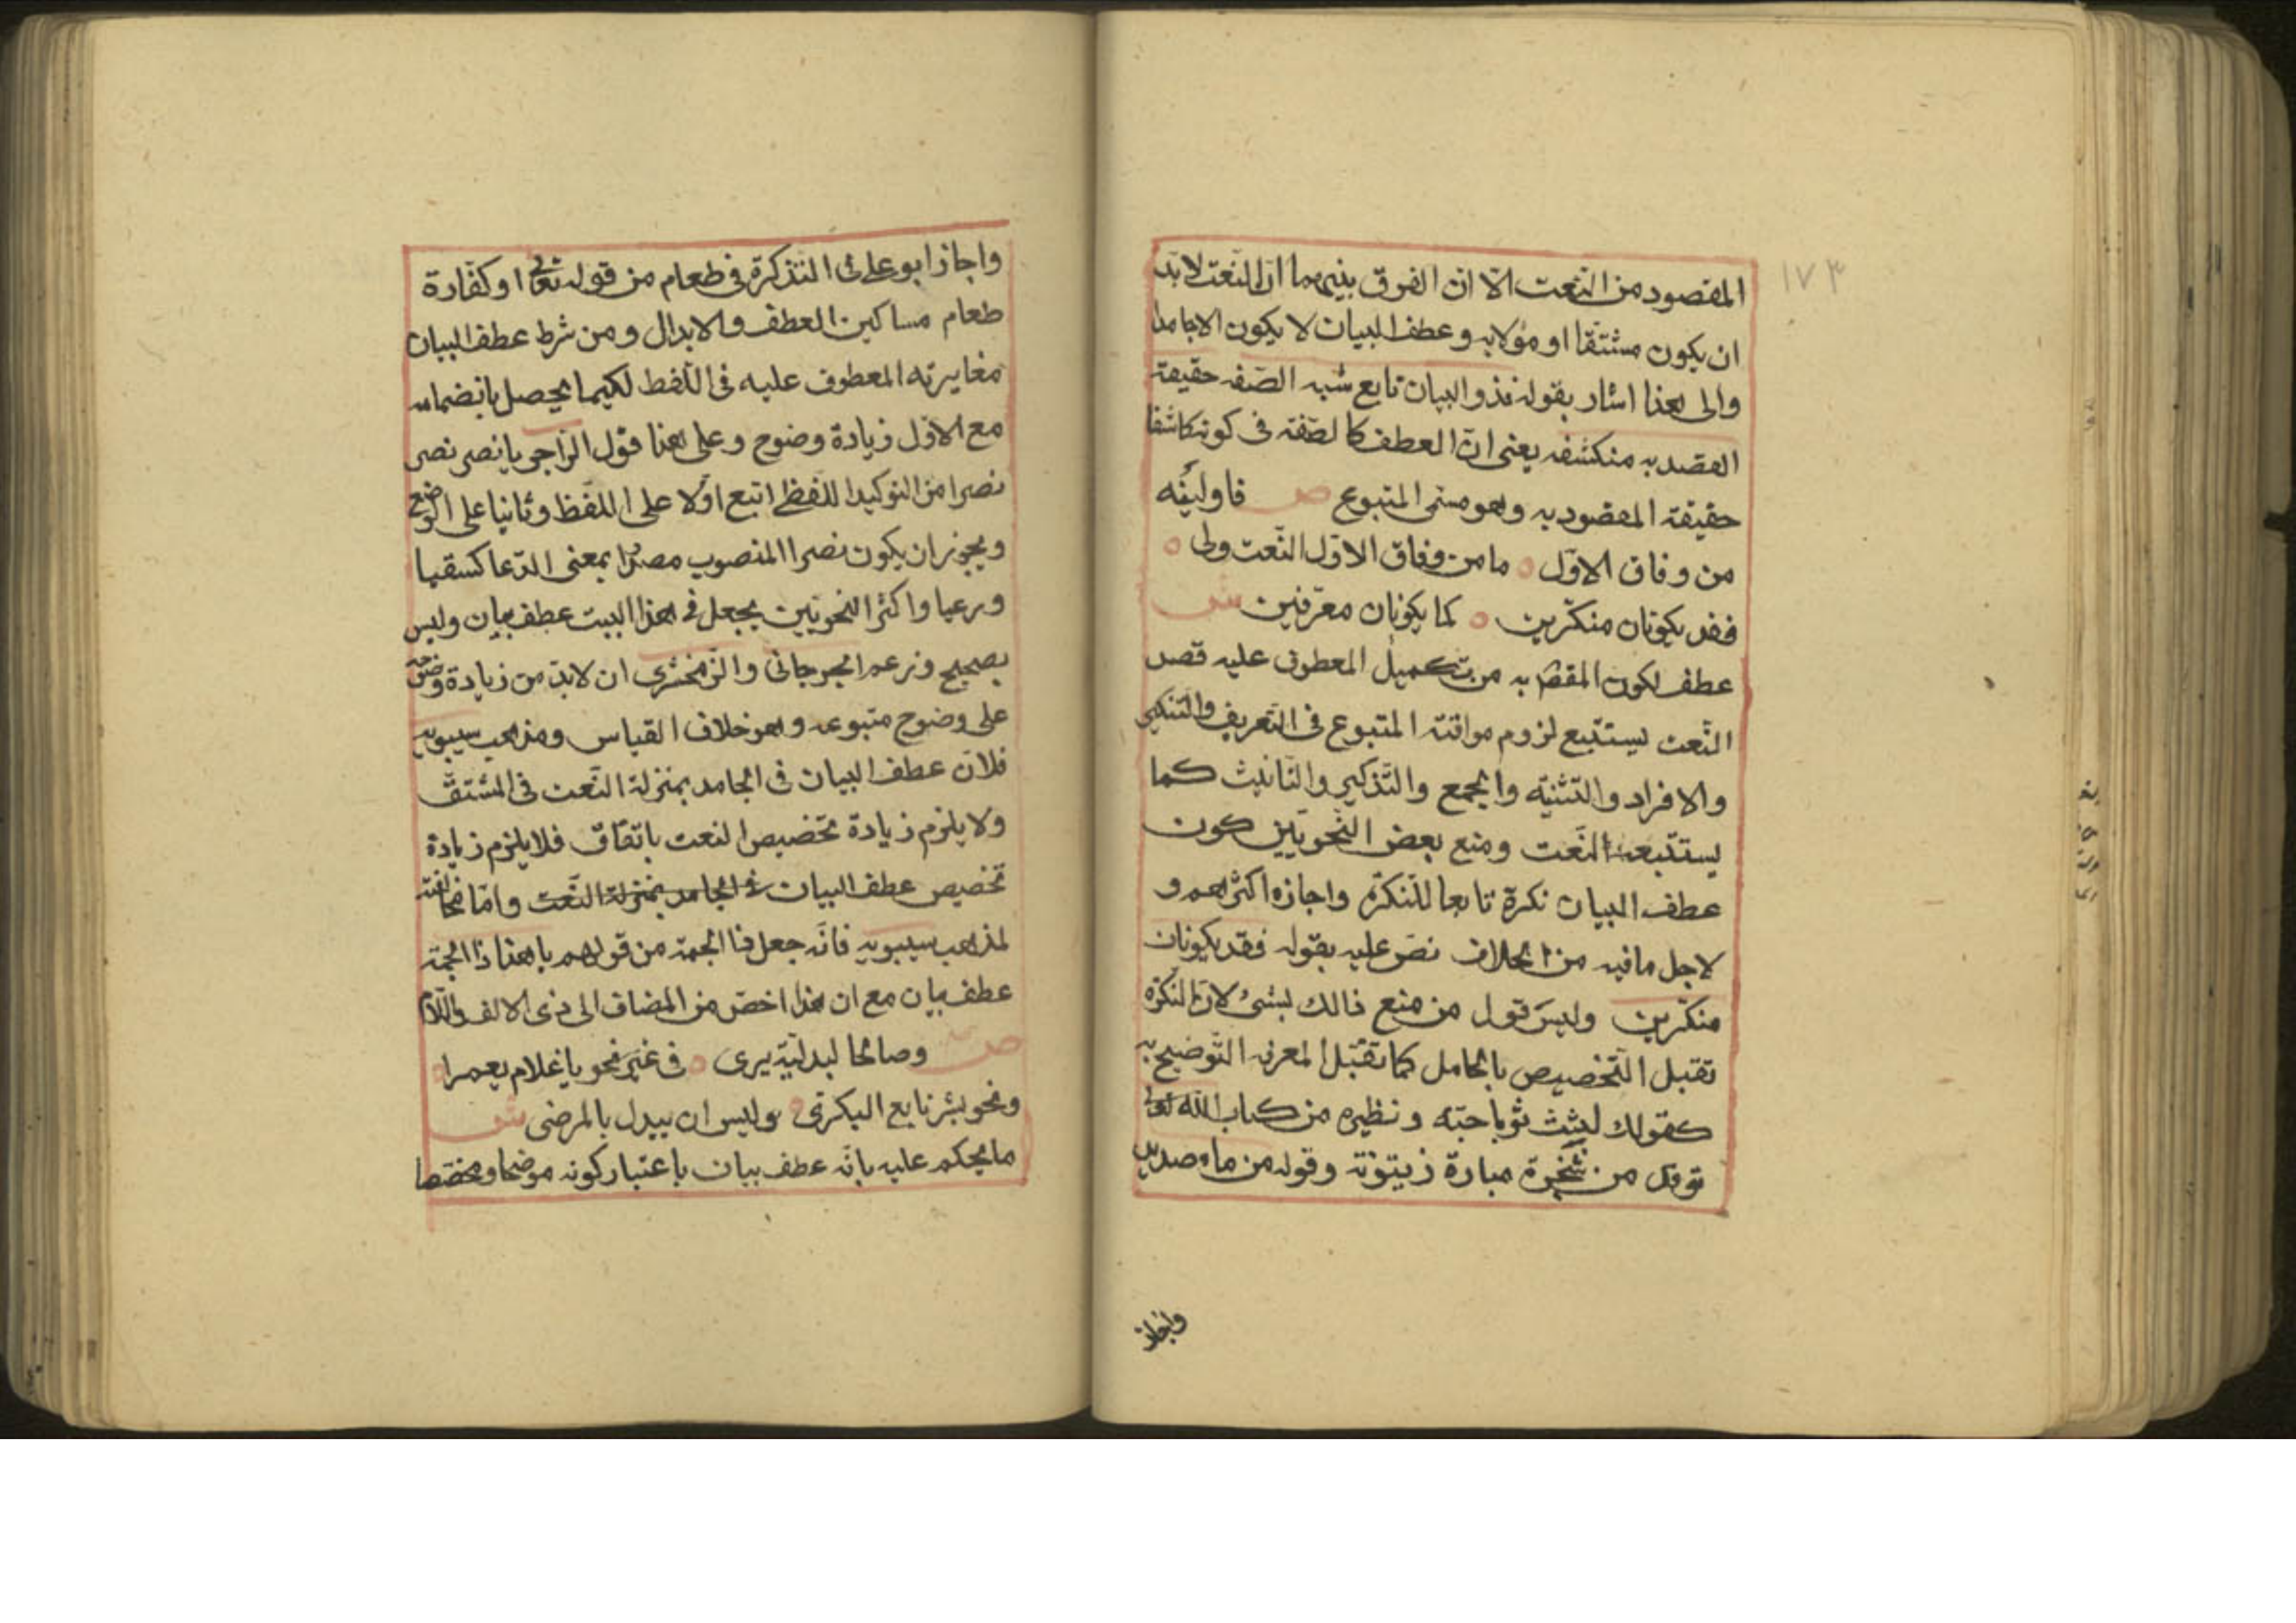 ١٧٣
المقصود من النّعت الّا انّ الفرق بينهما انّ النّعت لابدّ
ان يكون مشتقا او مؤلا به وعطف البيان لا يكون الا جامدا
والى هذا اشار بقوله فذو البيان تابع شبه الصّفه حقيقة
القصد به منكشفه يعنى انّ العطف كالصّفة فى كونه كاشفا
حقيقة المقصود به وهو مسمى المتبوع ص فاولينه
من وفاق الاوّل ما من وفاق الاوّل النّعت ولى
فقد يكونان منكّرين كما يكونان معرّفين ش
عطف لكون المقصد به من تكميل المعطوف عليه قصد
النّعت يستتبع لزوم موافقة المتبوع فى التّعريف والتّنكير
والافراد والتّثنيه والجمع والتّذكير والتّانيث كما
يستتبعه النّعت ومنع بعض النّحويّين كون
عطف البيان نكرة تابعا للنكرة واجازه اكثرهم و
لاجل ما فيه من الخلاف نصّ عليه بقوله فقد يكونان
منكّرين وليس قول من منع ذالك بشئ لانّ النّكرة
تقبل التّخصيص بالحامل كما تقبل المعرفه التّوضيح به
كقولك لبثث ثوبا حبّه ونظيره من كتاب الله تعالى
توقد من شجرة مباركة زيتونة وقوله من ماء صديد
واجاز
واجاز ابو على فى التّذكرة فى طعام من قوله تعالى او كفّارة
طعام مساكين العطف والابدال ومن شرط عطف البيان
مغايرته المعطوف عليه فى اللّفظ لكيما يحصل بانضمامه
مع الاوّل زيادة وضوح وعلى هذا قول الرّاجز يا نصر نصر
نصرا من التوكيد اللفظى اتبع اوّلا على اللّفظ وثانيا على الموضع
ويجوز ان يكون نصرا المنصوب مصدرا بمعنى الدّعا كسقيا
ورعيا واكثر النحويّين يجعل فى هذا البيت عطف بيان وليس
بصحيح وزعم الجرجانى والزّمخشرى ان لابدّ من زيادة وضوحه
على وضوح متبوعه وهو خلاف القياس ومذهب سيبويه
فلانّ عطف البيان فى الجامد بمنزلة النّعت فى المشتقّ
ولا يلزم زيادة تخصيص النعت باتّفاق فلا يلزم زيادة
تخصيص عطف البيان فى الجامد بمنزلة النّعت وامّا مخالفته
لمذهب سيبويه فانّه جعل ذا الجمة من قولهم يا هذا ذا الجمّة
عطف بيان مع ان هذا اخصّ من المضاف الى ذى الالف واللّام
ص وصالحا لبدليّة يرى فى غير نحو يا غلام يعمرا
ونحو بشر تابع البكرىّ وليس ان يبدل بالمرضى ش
ما يحكم عليه بانّه عطف بيان باعتبار كونه موضحا ومخصّصا